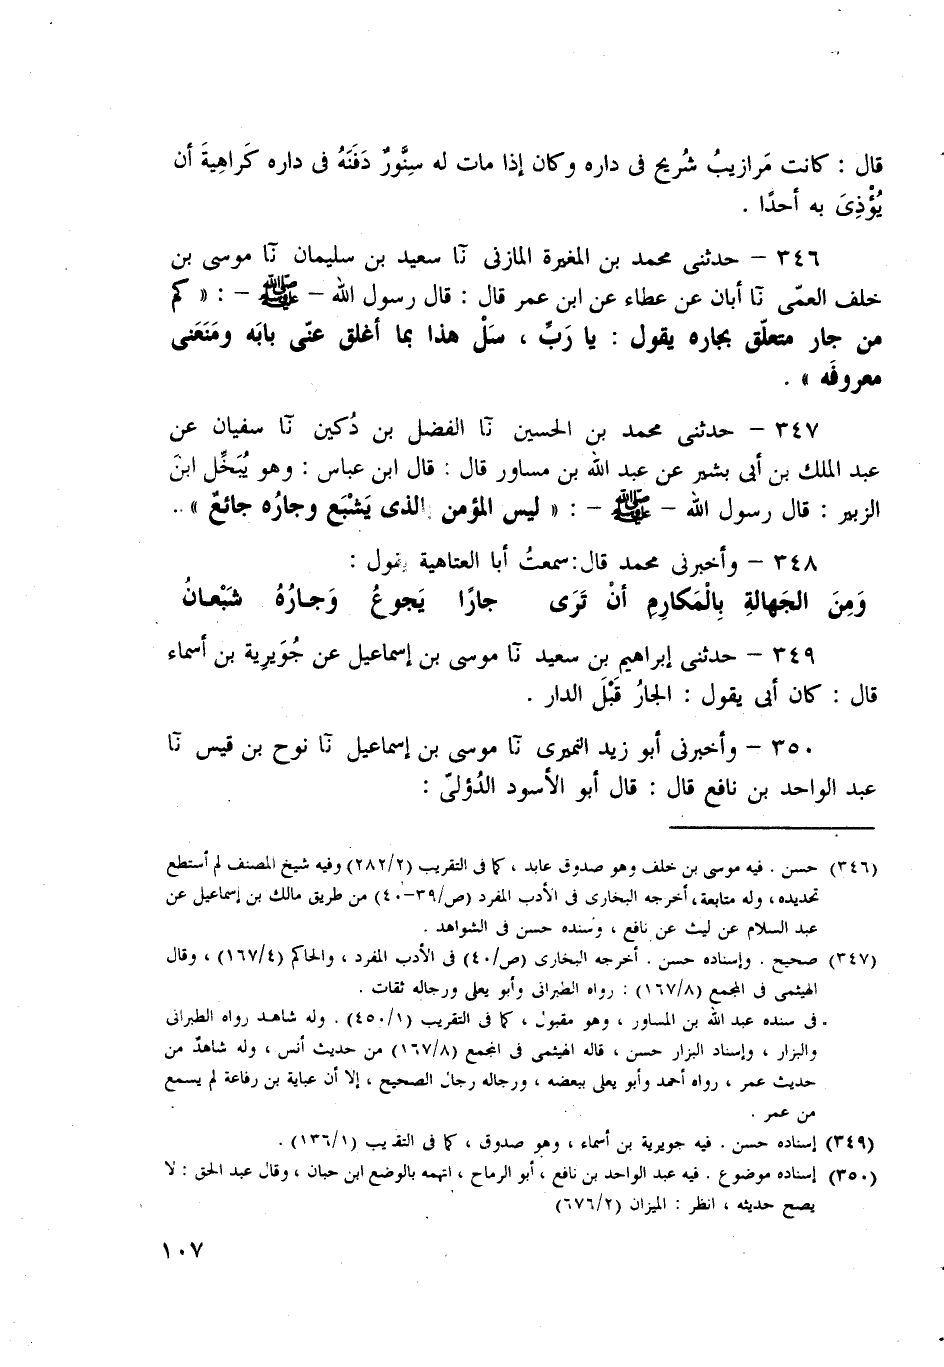 قال : كانت مَرازيبُ شُريح فى داره وكان إذا مات له سِنَّورٌ دَفَنَهُ فى داره كَراهِيةَ أن
يُؤْذِىَ به أحدًا .
٣٤٦ – حدثنى محمد بن المغيرة المازنى نَا سعيد بن سليمان نَا موسى بن
خلف العمّى نَا أبان عن عطاء عن ابن عمر قال : قال رسول الله – ﷺ – : « كم
من جار متعلّق بجاره يقول : يا رَبِّ ، سَلْ هذا بما أغلق عنّى بابَه ومَنَعَنى
معروفَه » .
٣٤٧ – حدثنى محمد بن الحسين نَا الفضل بن دُكين نَا سفيان عن
عبد الملك بن أبى بشير عن عبد الله بن مساور قال : قال ابن عباس : وهو يُبَخِّل ابنَ
الزبير : قال رسول الله – ﷺ – : « ليس المؤمن الذى يَشْبَع وجارُه جائعٌ » .
٣٤٨ – وأخبرنى محمد قال : سمعتُ أبا العتاهية يقول :
وَمِنَ الجَهالةِ بِالْمَكارِمِ أنْ تَرَى جارًا يَجوعُ وَجـارُهُ شَبْعـانُ
٣٤٩ – حدثنى إبراهيم بن سعيد نَا موسى بن إسماعيل عن جُوَيرية بن أسماء
قال : كان أبى يقول : الجارُ قَبْلَ الدار .
٣٥٠ – وأخبرنى أبو زيد النميرى نَا موسى بن إسماعيل نَا نوح بن قيس نَا
عبد الواحد بن نافع قال : قال أبو الأسود الدُؤلىّ :
(٣٤٦) حسن . فيه موسى بن خلف وهو صدوق عابد ، كما فى التقريب (٢٨٢/٢) وفيه شيخ المصنف لم أستطع
تحديده ، وله متابعة ، أخرجه البخارى فى الأدب المفرد (ص/٣٩–٤٠) من طريق مالك بن إسماعيل عن
عبد السلام عن ليث عن نافع ، وسنده حسن فى الشواهد .
(٣٤٧) صحيح . وإسناده حسن . أخرجه البخارى (ص/٤٠) فى الأدب المفرد ، والحاكم (١٦٧/٤) ، وقال
الهيثمى فى المجمع (١٦٧/٨) : رواه الطبرانى وأبو يعلى ورجاله ثقات .
. فى سنده عبد الله بن المساور ، وهو مقبول ، كما فى التقريب (٤٥٠/١) . وله شاهـد رواه الطبرانى
والبزار ، وإسناد البزار حسن ، قاله الهيثمى فى المجمع (١٦٧/٨) من حديث أنس ، وله شاهدٌ من
حديث عمر ، رواه أحمد وأبو يعلى ببعضه ، ورجاله رجال الصحيح ، إلا أن عباية بن رفاعة لم يسمع
من عمر .
(٣٤٩) إسناده حسن . فيه جويرية بن أسماء ، وهو صدوق ، كما فى التقريب (١٣٦/١) .
(٣٥٠) إسناده موضوع . فيه عبد الواحد بن نافع ، أبو الرماح ، اتهمه بالوضع ابن حبان ، وقال عبد الحق : لا
يصح حديثه ، انظر : الميزان (٦٧٦/٢)
١٠٧